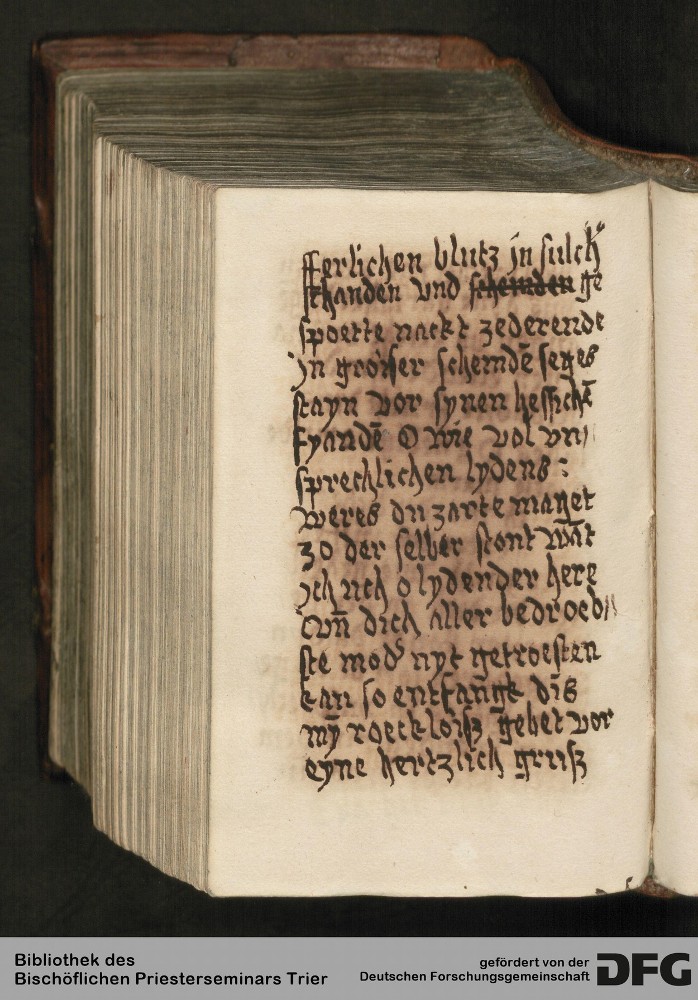 fferlichen blutz jn sulch̉
schanden vnd schemden ge
spoette nackt zederende
jn groiſſer schemdē ſeges
ſtayn vor ſynen heſſichē
fyandē O wie vol vn//
ſprechlichen lydens:
weres du zarte maget
zo der ſelber ſtont
jch uch o lydender here
vn̄ dich aller bedroed//
ſte mod nyt getroeſten
kan ſo entfangk dis
mȳ roeckloiſz gebet vor
eyne hertzlich gruſz
Bibliothek des
Bischöflichen Priesterseminars Trier
gefördert von der
Deutschen Forschungsgemeinschaft
DFG